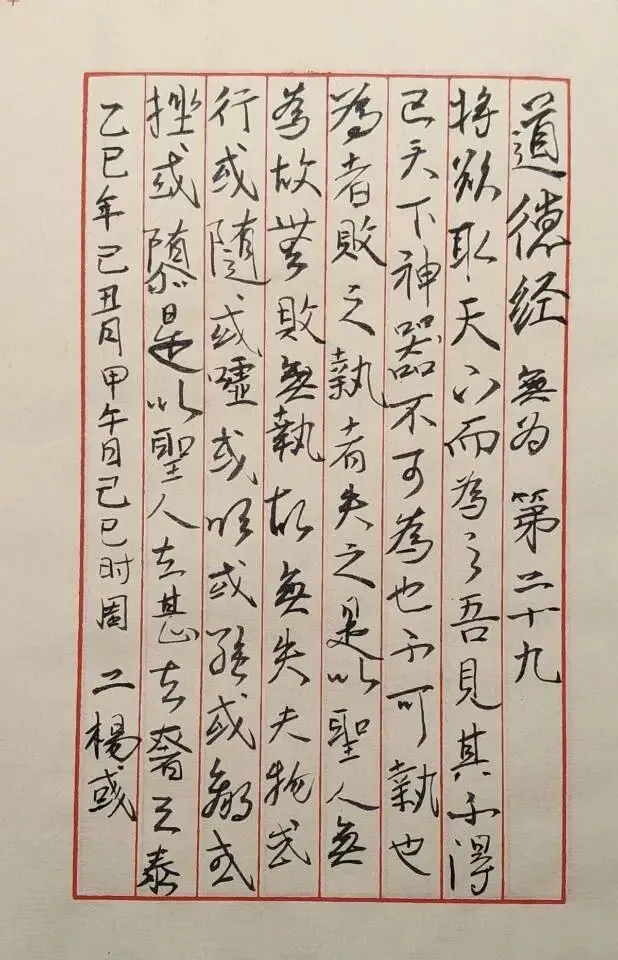 道德经 無为 第二十九
将欲取天下而為之吾見其不得
已天下神器不可為也不可執也
為者敗之執者失之是以聖人無
為故無敗無執故無失夫物或
行或隨或噓或吹或强或羸或
挫或隳是以聖人去甚去奢去泰
乙巳年己丑月甲午日己巳时周二楊彧